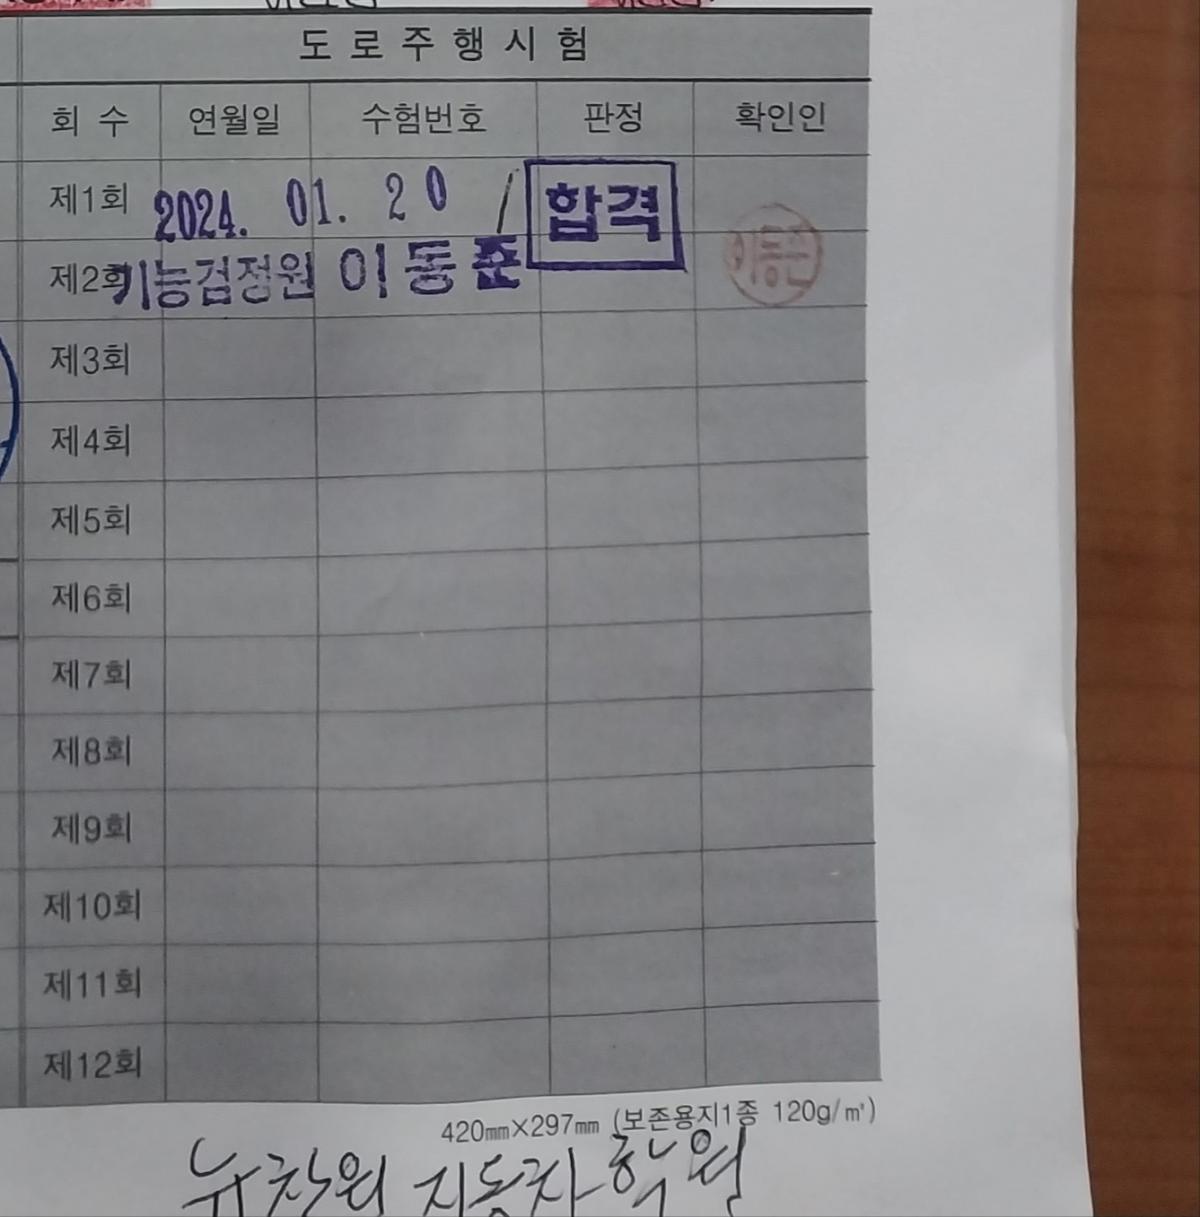 도로주행시험
회수 연월일 수험번호 판정 확인인
제1회 2024. 01. 20 / 합격
제2회 기능검정원 이동준 이동준
제3회
제4회
제5회
제6회
제7회
제8회
제9회
제10회
제11회
제12회
420㎜×297㎜ (보존용지1종 120g/㎡)
뉴창원 자동차학원